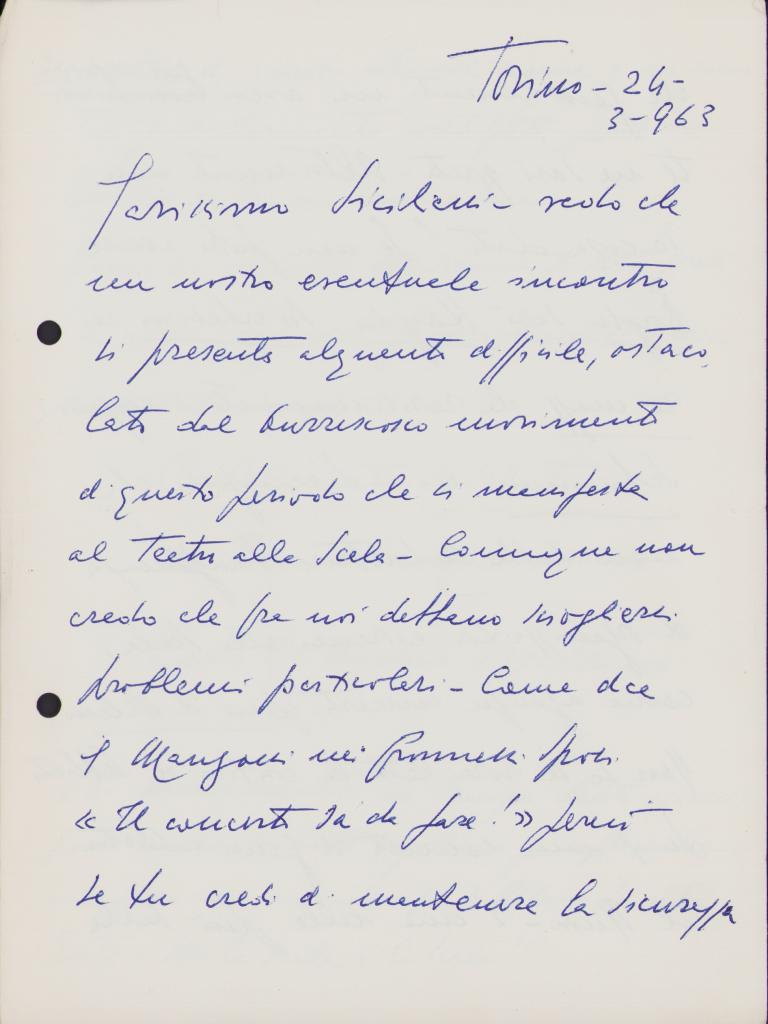 Torino - 24 -
3 - 963
Carissimo Siciliani - vedo che
un nostro eventuale incontro
si presenta alquanto difficile, ostaco
lato dal burrascoso movimento
di questo periodo che si manifesta
al Teatro alla Scala - Comunque non
credo che fra noi debbano sciogliersi
problemi particolari - Come dice
il Manzoni nei Promessi Sposi
« Il concerto s'a da fare! » perciò
se tu credi di mantenere la sicurezza